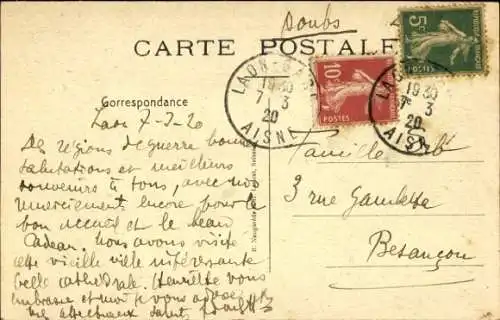 Doubs
CARTE POSTALE
5c
10c
LAON-GARE
1930
7-3
20
AISNE
LAON
1930
7-3
20
AISNE
Correspondance
Laon 7-3-20
Des régions de guerre bonnes
salutations et meilleurs
souvenirs à tous, avec nos
remerciements encore pour le
bon accueil et le beau
Cadeau. Nous avons visité
cette vieille ville intéressante
belle cathédrale. Henriette vous
embrasse et moi je vous adresse
mes affectueux saluts
Famille
3 rue Gambetta
Besançon